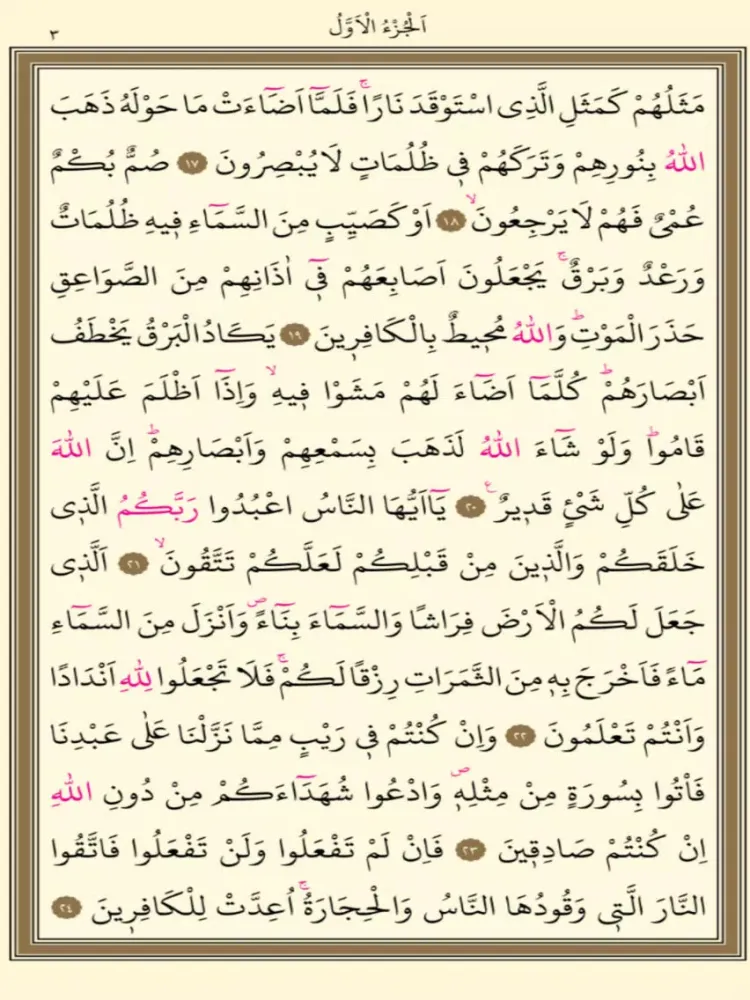 اَلْجُزْءُ الْاَوَّلُ ٣
مَثَلُهُمْ كَمَثَلِ الَّذِى اسْتَوْقَدَ نَارًاۚ فَلَمَّٓا اَضَٓاءَتْ مَا حَوْلَهُ ذَهَبَ
اللّٰهُ بِنُورِهِمْ وَتَرَكَهُمْ فٖى ظُلُمَاتٍ لَا يُبْصِرُونَ ﴿١٧﴾ صُمٌّ بُكْمٌ
عُمْىٌ فَهُمْ لَا يَرْجِعُونَۙ ﴿١٨﴾ اَوْ كَصَيِّبٍ مِنَ السَّمَٓاءِ فٖيهِ ظُلُمَاتٌ
وَرَعْدٌ وَبَرْقٌۚ يَجْعَلُونَ اَصَابِعَهُمْ فٖٓى اٰذَانِهِمْ مِنَ الصَّوَاعِقِ
حَذَرَ الْمَوْتِؕ وَاللّٰهُ مُحٖيطٌ بِالْكَافِرٖينَ ﴿١٩﴾ يَكَادُ الْبَرْقُ يَخْطَفُ
اَبْصَارَهُمْؕ كُلَّمَٓا اَضَٓاءَ لَهُمْ مَشَوْا فٖيهِۙ وَاِذَٓا اَظْلَمَ عَلَيْهِمْ
قَامُواؕ وَلَوْ شَٓاءَ اللّٰهُ لَذَهَبَ بِسَمْعِهِمْ وَاَبْصَارِهِمْؕ اِنَّ اللّٰهَ
عَلٰى كُلِّ شَیْءٍ قَدٖيرٌࣖ ﴿٢٠﴾ يَٓا اَيُّهَا النَّاسُ اعْبُدُوا رَبَّكُمُ الَّذٖى
خَلَقَكُمْ وَالَّذٖينَ مِنْ قَبْلِكُمْ لَعَلَّكُمْ تَتَّقُونَۙ ﴿٢١﴾ اَلَّذٖى
جَعَلَ لَكُمُ الْاَرْضَ فِرَاشًا وَالسَّمَٓاءَ بِنَٓاءًࣕ وَاَنْزَلَ مِنَ السَّمَٓاءِ
مَٓاءً فَاَخْرَجَ بِهٖ مِنَ الثَّمَرَاتِ رِزْقًا لَكُمْۚ فَلَا تَجْعَلُوا لِلّٰهِ اَنْدَادًا
وَاَنْتُمْ تَعْلَمُونَ ﴿٢٢﴾ وَاِنْ كُنْتُمْ فٖى رَيْبٍ مِمَّا نَزَّلْنَا عَلٰى عَبْدِنَا
فَاْتُوا بِسُورَةٍ مِنْ مِثْلِهٖࣕ وَادْعُوا شُهَدَٓاءَكُمْ مِنْ دُونِ اللّٰهِ
اِنْ كُنْتُمْ صَادِقٖينَ ﴿٢٣﴾ فَاِنْ لَمْ تَفْعَلُوا وَلَنْ تَفْعَلُوا فَاتَّقُوا
النَّارَ الَّتٖى وَقُودُهَا النَّاسُ وَالْحِجَارَةُۚ اُعِدَّتْ لِلْكَافِرٖينَ ﴿٢٤﴾